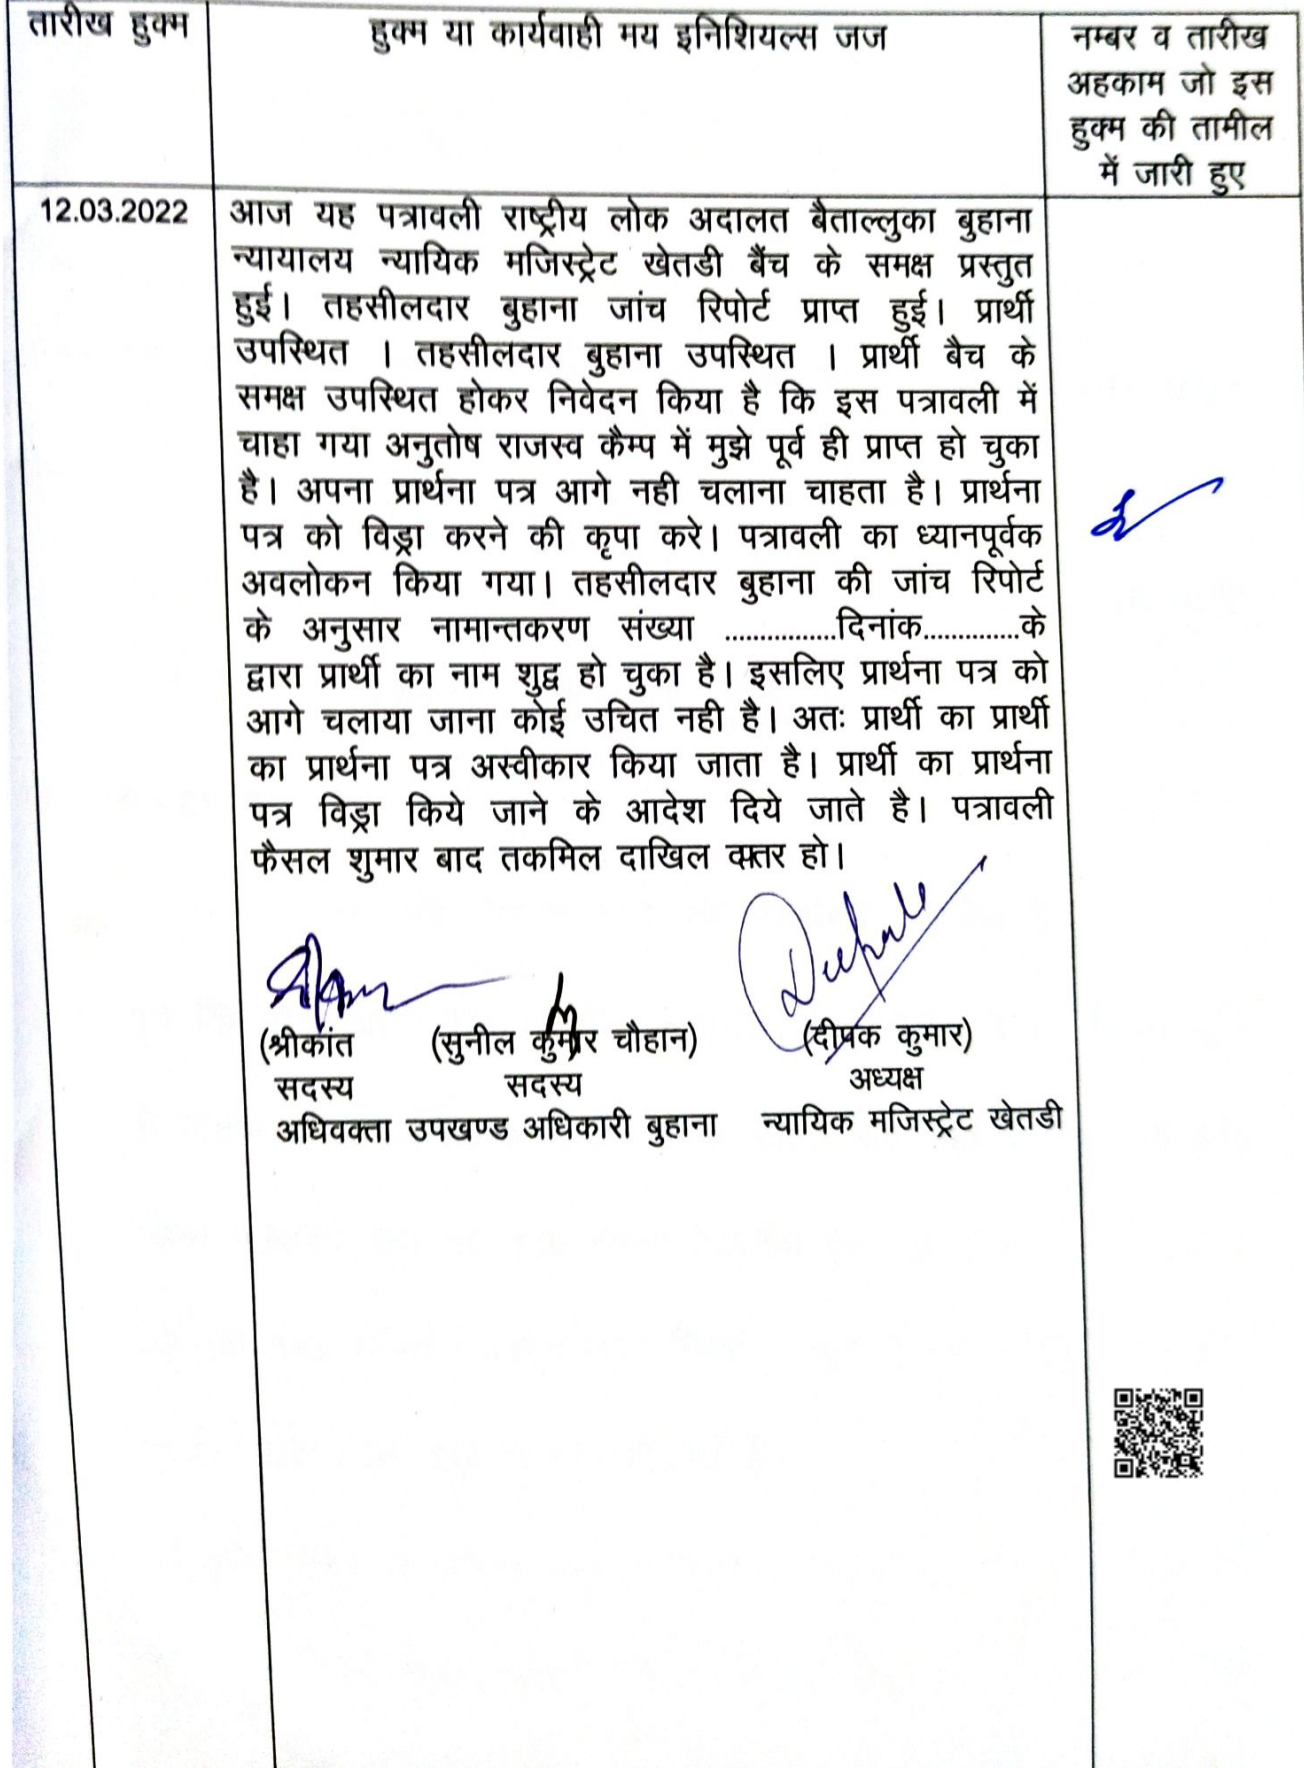 तारीख हुक्म
हुक्म या कार्यवाही मय इनिशियल्स जज
नम्बर व तारीख
अहकाम जो इस
हुक्म की तामील
में जारी हुए
12.03.2022
आज यह पत्रावली राष्ट्रीय लोक अदालत बैताल्लुका बुहाना
न्यायालय न्यायिक मजिस्ट्रेट खेतडी बैंच के समक्ष प्रस्तुत
हुई। तहसीलदार बुहाना जांच रिपोर्ट प्राप्त हुई। प्रार्थी
उपस्थित । तहसीलदार बुहाना उपस्थित । प्रार्थी बैच के
समक्ष उपस्थित होकर निवेदन किया है कि इस पत्रावली में
चाहा गया अनुतोष राजस्व कैम्प में मुझे पूर्व ही प्राप्त हो चुका
है। अपना प्रार्थना पत्र आगे नही चलाना चाहता है। प्रार्थना
पत्र को विड्रा करने की कृपा करे। पत्रावली का ध्यानपूर्वक
अवलोकन किया गया। तहसीलदार बुहाना की जांच रिपोर्ट
के अनुसार नामान्तकरण संख्या ................दिनांक..............के
द्वारा प्रार्थी का नाम शुद्व हो चुका है। इसलिए प्रार्थना पत्र को
आगे चलाया जाना कोई उचित नही है। अतः प्रार्थी का प्रार्थी
का प्रार्थना पत्र अस्वीकार किया जाता है। प्रार्थी का प्रार्थना
पत्र विड्रा किये जाने के आदेश दिये जाते है। पत्रावली
फैसल शुमार बाद तकमिल दाखिल दफ्तर हो।
Deepak
(श्रीकांत (सुनील कुमार चौहान) (दीपक कुमार)
सदस्य सदस्य अध्यक्ष
अधिवक्ता उपखण्ड अधिकारी बुहाना न्यायिक मजिस्ट्रेट खेतडी